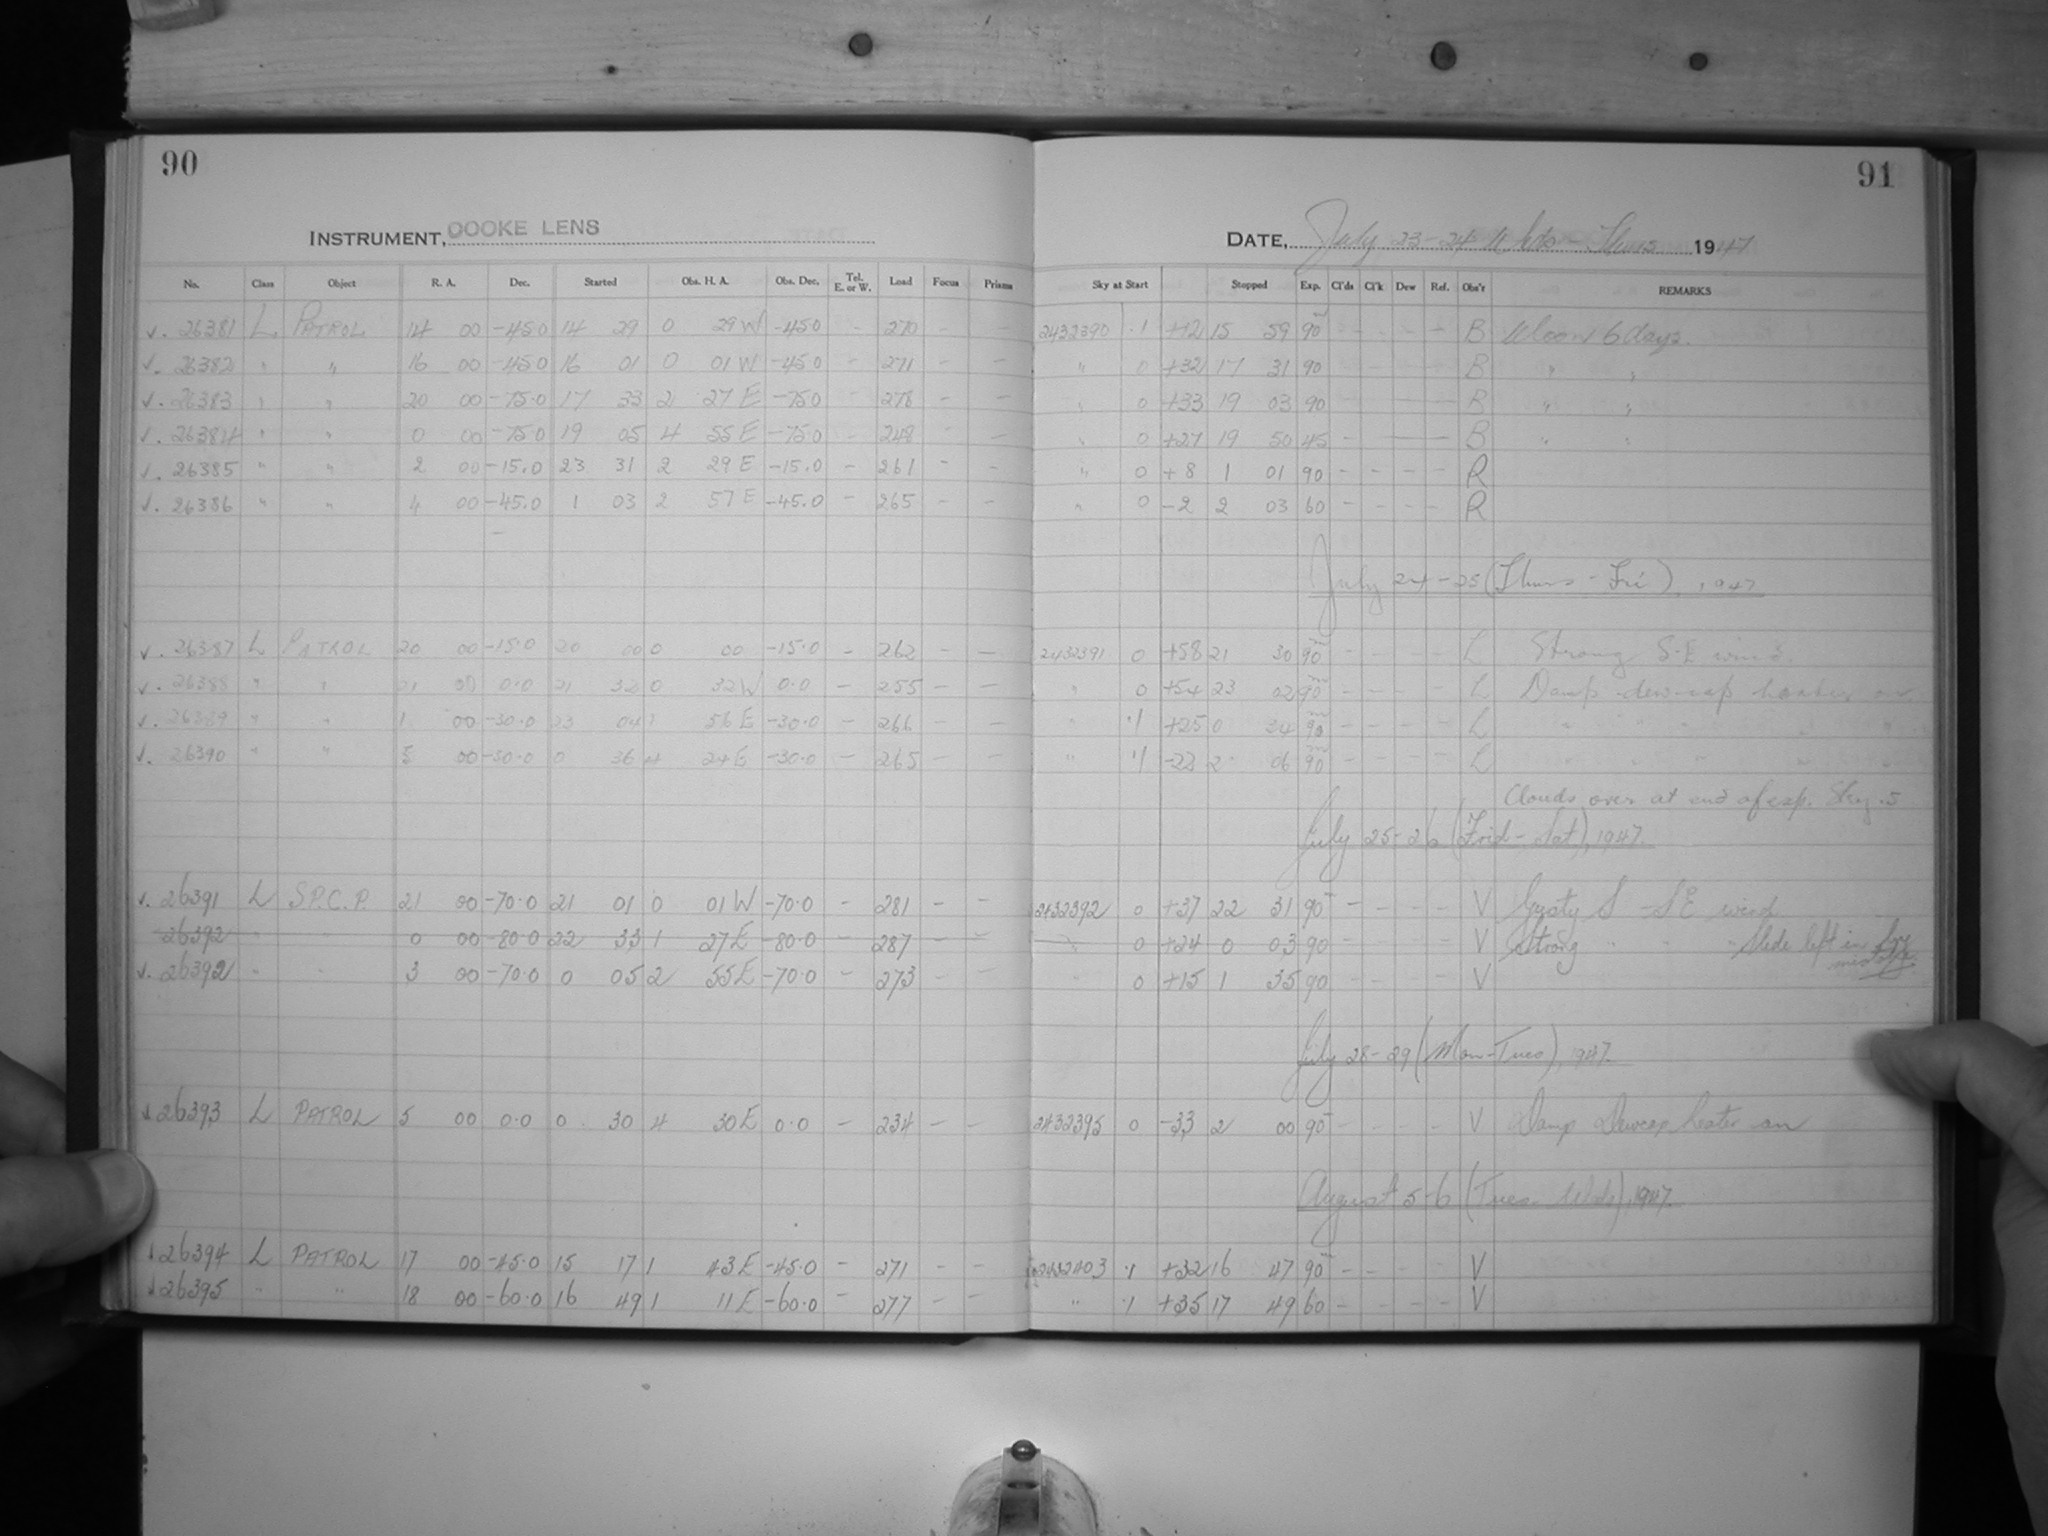 90
INSTRUMENT, COOKE LENS
No. Class Object R. A. Dec. Started Obs. H. A. Obs. Dec. Tel. E. or W. Load Focus Prisms
v. 26381 L PATROL 14 00 -45.0 14 29 0 29 W -45.0 - 270 - -
v. 26382 " " 16 00 -45.0 16 01 0 01 W -45.0 - 271 - -
v. 26383 " " 20 00 -75.0 17 33 2 27 E -75.0 - 278 - -
v. 26384 " " 0 00 -75.0 19 05 4 55 E -75.0 - 248 - -
v. 26385 " " 2 00 -15.0 23 31 2 29 E -15.0 - 261 - -
v. 26386 " " 4 00 -45.0 1 03 2 57 E -45.0 - 265 - -
v. 26387 L PATROL 20 00 -15.0 20 00 0 00 -15.0 - 262 - -
v. 26388 " " 21 00 0.0 21 32 0 32 W 0.0 - 255 - -
v. 26389 " " 1 00 -30.0 23 04 1 56 E -30.0 - 266 - -
v. 26390 " " 5 00 -30.0 0 36 4 24 E -30.0 - 265 - -
v. 26391 L S.P.C.P. 21 00 -70.0 21 01 0 01 W -70.0 - 281 - -
26392 " " 0 00 -80.0 22 33 1 27 E -80.0 - 287 - -
v. 26392 " " 3 00 -70.0 0 05 2 55 E -70.0 - 273 - -
v 26393 L PATROL 5 00 0.0 0 30 4 30 E 0.0 - 234 - -
v 26394 L PATROL 17 00 -45.0 15 17 1 43 E -45.0 - 271 - -
v 26395 " " 18 00 -60.0 16 49 1 11 E -60.0 - 277 - -
91
DATE, July 23-24 Weds-Thurs 1947
Sky at Start Stopped Exp. Cl'ds Cl'k Dew Ref. Obs'r REMARKS
2432390 .1 +12 15 59 90m - - - - B Moon 6 days.
" 0 +32 17 31 90 - - - - B " "
" 0 +33 19 03 90 - - - - B " "
" 0 +27 19 50 45 - - - B " "
" 0 +8 1 01 90 - - - - R
" 0 -2 2 03 60 - - - - R
July 24-25 (Thurs - Fri), 1947
2432391 0 +58 21 30 90m - - - - L Strong S-E wind.
" 0 +54 23 02 90m - - - - L Damp dew-cap heater on
" .1 +25 0 34 90m - - - - L " " " "
" .1 -22 2 06 90m - - - - L " " " "
Clouds over at end of exp. Sky .5
July 25-26 (Frid-Sat), 1947.
2432392 0 +37 22 31 90m - - - - V Gusty S-SE wind
" 0 +24 0 03 90 - - - - V Strong " " Slide left in by mistake.
" 0 +15 1 35 90 - - - - V
July 28-29 (Mon-Tues), 1947.
2432395 0 -33 2 00 90m - - - - V Damp Dewcap heater on
August 5-6 (Tues-Weds), 1947.
2432403 .1 +32 16 47 90m - - - - V
" .1 +35 17 49 60 - - - - V